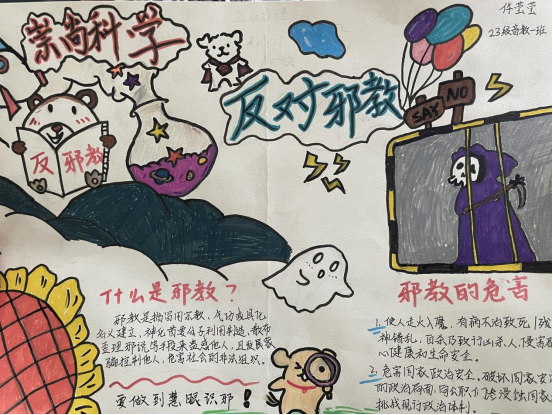 崇尚科学
反对邪教
23级音教一班
SAY NO
反邪教
什么是邪教？
邪教是指冒用宗教、气功或其他
名义建立、神化首要分子利用制造、散布
歪理邪说等手段来蛊惑他人，且发展
控制他人，危害社会的非法组织。
要做到慧眼识邪！
邪教的危害
1.使人走火入魔，有病不治致死，残
神错乱，自杀
心健康和生命安全。
2.危害国家政治安全。破坏国家安
的政治局面，
挑战现行政治体制。